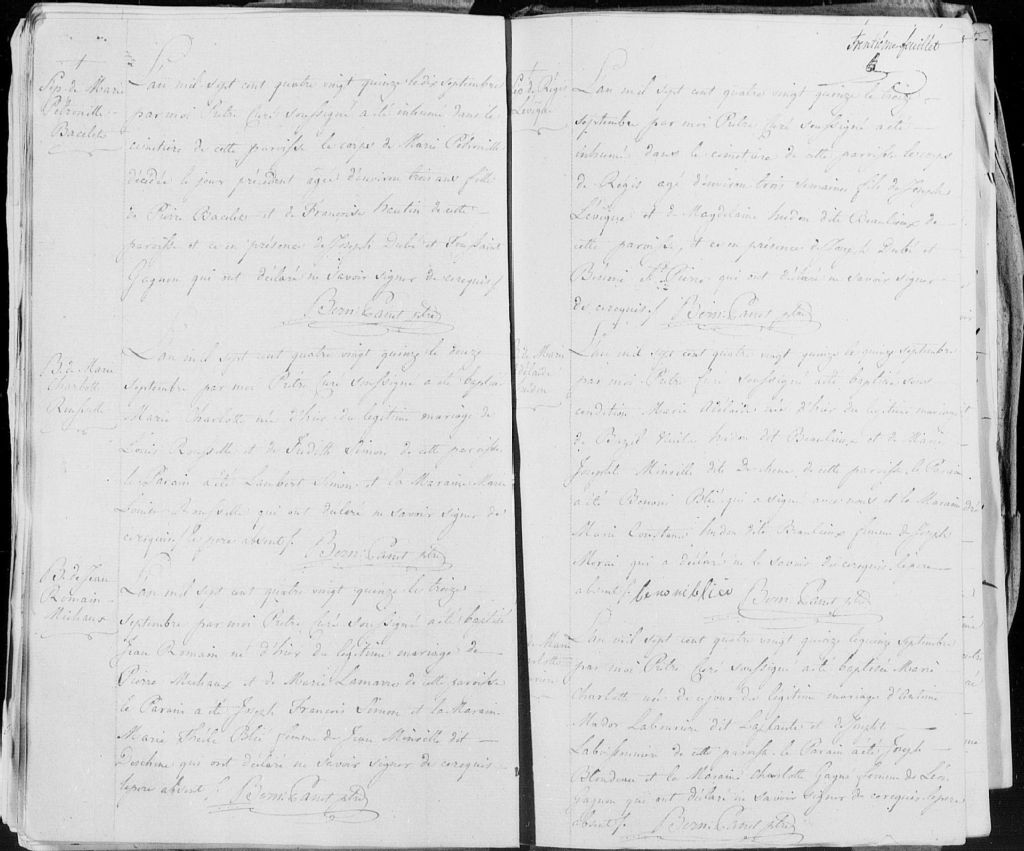 +
Sep. de Marie
Pétronille
Bacelet
L'an mil sept cent quatre vingt quinze le dix septembre
par moi Prêtre Curé soussigné a été inhumé dans le
cimetière de cette paroisse le corps de Marie Pétronille
décédée le jour précédent agée d'environ trois ans fille
de Pierre Bacelet et de Françoise hautin de cette
paroisse et ce en présence de Joseph Dubé et Toussaint
Gagnon qui ont déclaré ne savoir signer de ce requis ./.
Bern. Panet ptre
B. de Marie
Charlotte
Rousselle
L'an mil sept cent quatre vingt quinze le douze
septembre par moi Prêtre Curé soussigné a été baptisé
Marie Charlotte née d'hier du légitime mariage de
Louis Rousselle et de Judith Simon de cette paroisse
le Parain a été Lambert Simon et la Maraine Marie
Louise Rousselle qui ont déclaré ne savoir signer de
ce requis ./. le pere absent ./. Bern. Panet ptre
B. de Jean
Romain
Michaux
L'an mil sept cent quatre vingt quinze le treize
septembre par moi Prêtre Curé soussigné a été baptisé
Jean Romain né d'hier du légitime mariage de
Pierre Michaux et de Marie Lamarre de cette paroisse
le Parain a été Joseph François Simon et la Maraine
Marie Thècle Blié femme de Jean Minville dit
Deschene qui ont déclaré ne savoir signer de ce requis
le pere absent ./. Bern. Panet ptre
trentième feuillet
+
de Régis
Levêque
L'an mil sept cent quatre vingt quinze le treize
septembre par moi Prêtre Curé soussigné a été
inhumé dans le cimetière de cette paroisse le corps
de Régis agé d'environ trois semaines fils de Joseph
Levêque et de Magdelaine hudon dite Beaulieux de
cette paroisse, et ce en présence de Joseph Dubé et
St. Pierre qui ont déclaré ne savoir signer
de ce requis ./. Bern. Panet ptre
de Marie
délaide
hudon
L'an mil sept cent quatre vingt quinze le quinze septembre
par moi Prêtre Curé soussigné a été baptisée sous
condition Marie Adelaide née d'hier du légitime mariage
de Bazil hudon dit Beaulieux et de Marie
Josephte Minville dite Deschene de cette paroisse le Parain
a été Benoni Blié qui a signé avec nous et la Maraine
Marie Constance hudon dite Beaulieux femme de Joseph
Morin qui a déclaré ne le savoir de ce requis le pere
absent ./. benoni blie Bern. Panet ptre
de Marie
harlotte
L'an mil sept cent quatre vingt quinze le quinze septembre
par moi Prêtre Curé soussigné a été baptisée Marie
Charlotte née de ce jour du légitime mariage d'Antoine
Mador Labourière dit Laplante et de Josephte
Labrissonniere de cette paroisse le Parain a été Joseph
Blondeau et la Maraine Charlotte Gagné femme de Léon
Gagnon qui ont déclaré ne savoir signer de ce requis le pere
absent ./. Bern. Panet ptre